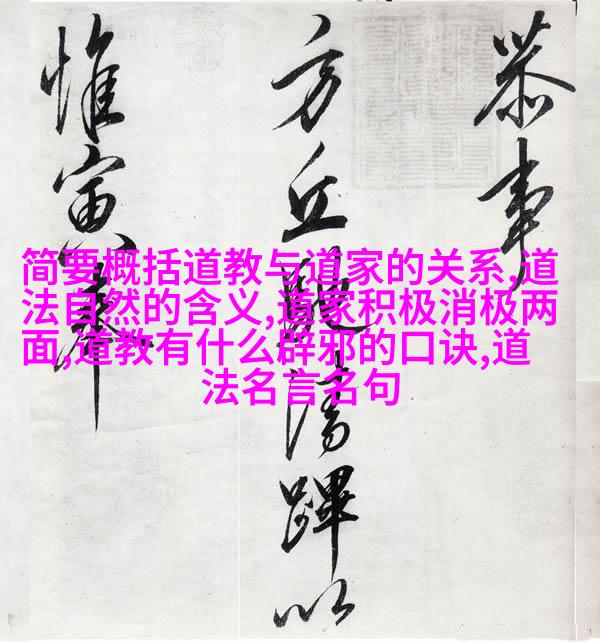 恭事
方丘清蹕以
惟寅奉
简要概括道教与道家的关系,道
法自然的含义,道家积极消极两
面,道教有什么辟邪的口诀,道
法名言名句